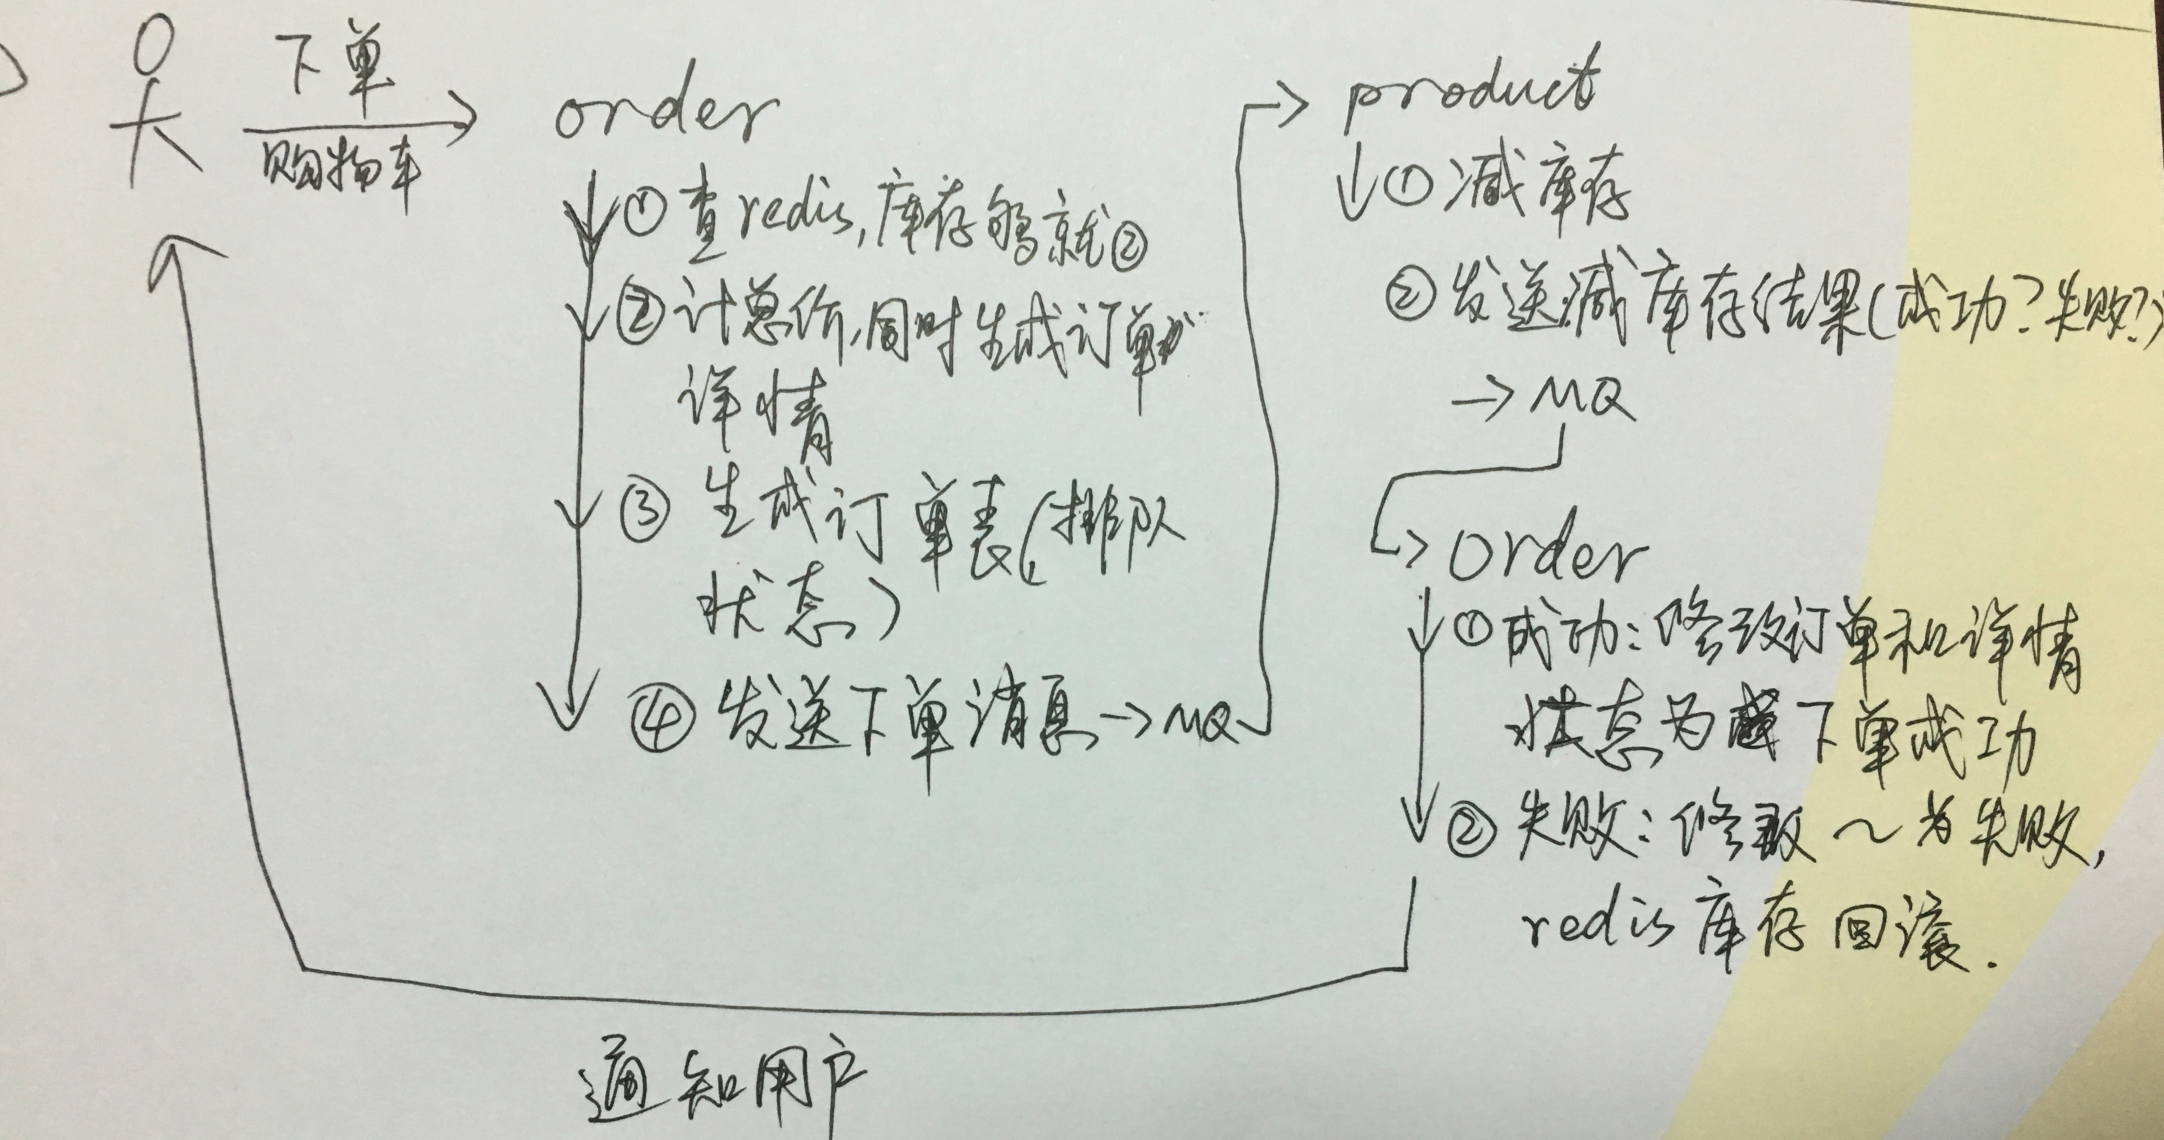 下单
购物车
order
① 查redis,库存够就②
② 计总价,同时生成订单
详情
③ 生成订单表(排队
状态)
④ 发送下单消息→MQ
product
① 减库存
② 发送减库存结果(成功?失败?)
→MQ
order
① 成功:修改订单和详情
状态为下单成功
② 失败:修改~为失败,
redis库存回滚.
通知用户